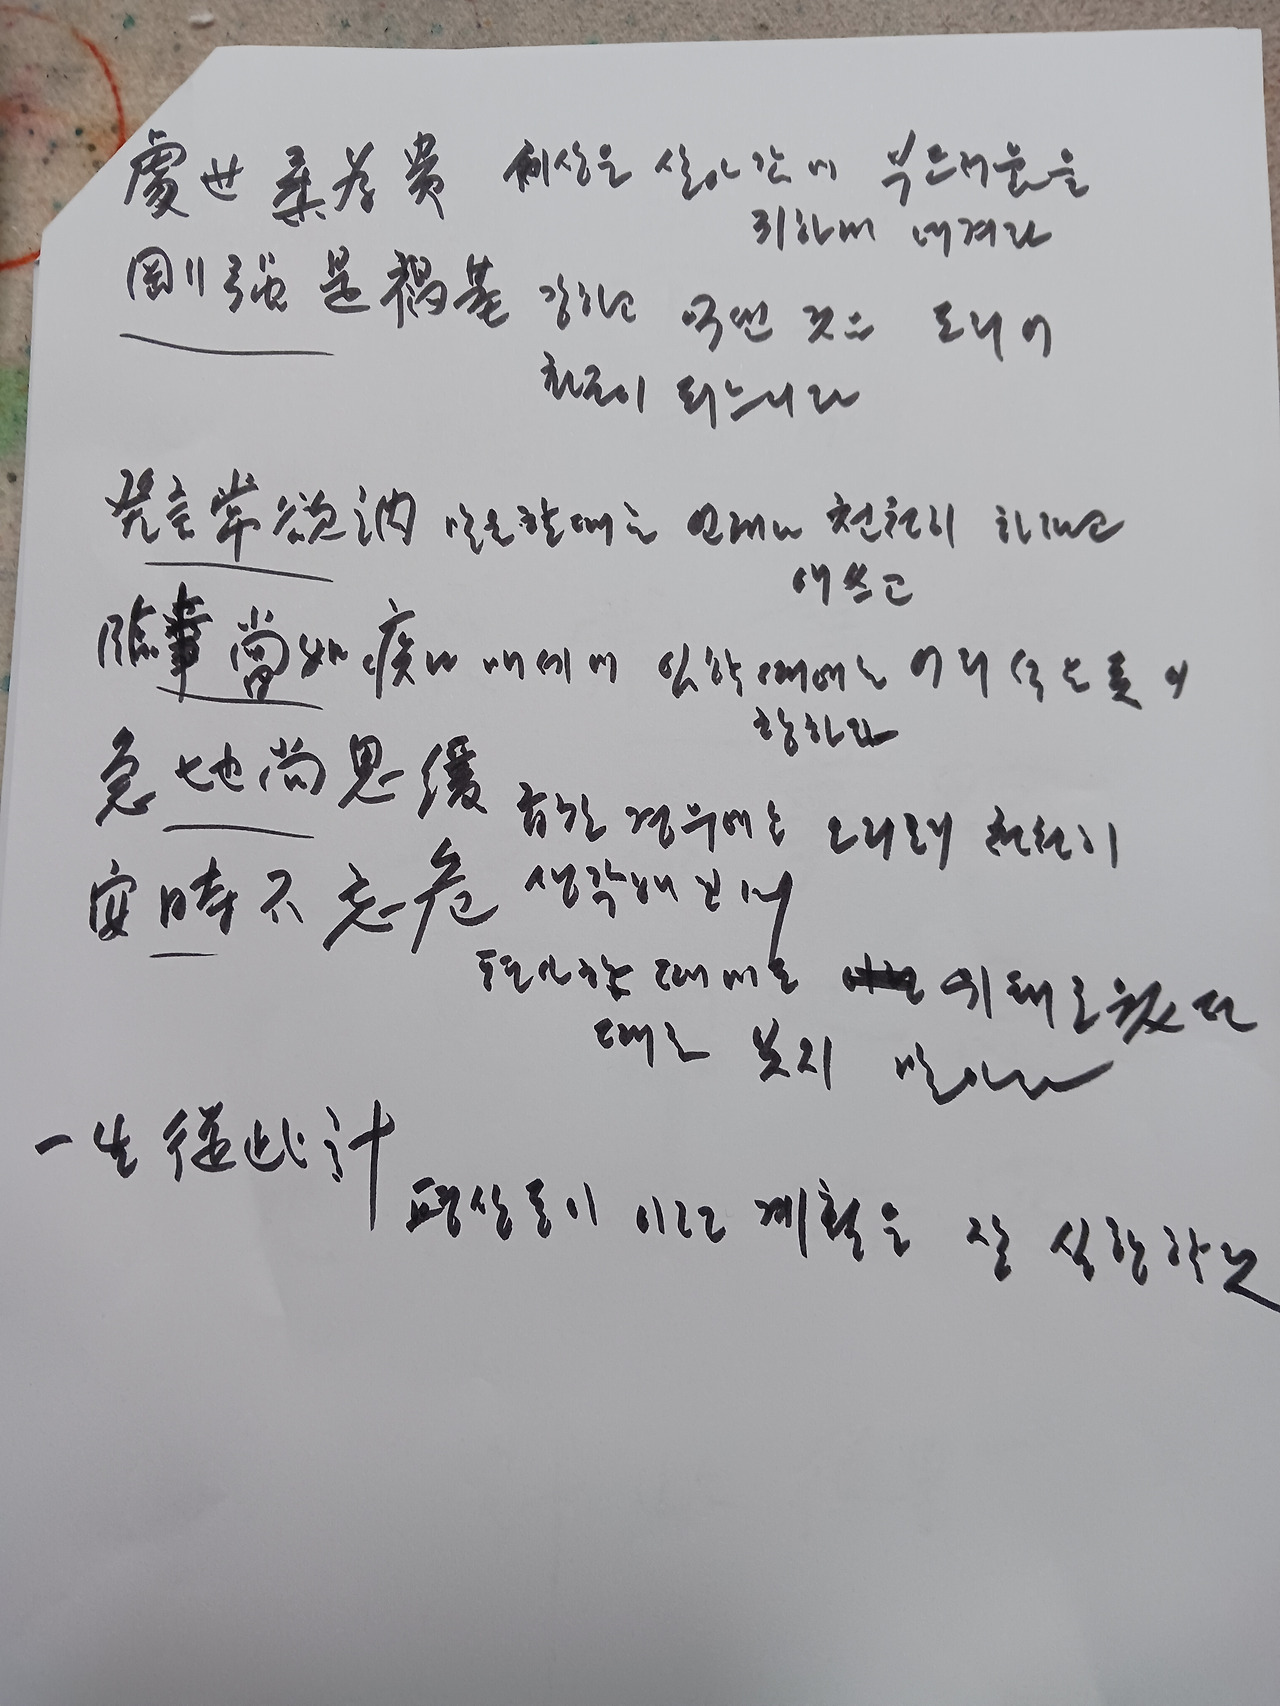 處世柔爲貴 세상을 살아감에 부드러움을
귀하게 여겨라
剛强是禍基 강하고 굳센 것은 도리어
화근이 되느니라
發言常欲訥 말을 할 때는 언제나 천천히 하려고
애쓰고
臨事當如痴 매사에 임할 때에는 어리석은 듯이
항하라
急地尙思緩 급한 경우에는 오히려 천천히
安時不忘危 생각해 보며
편안할 때에도 위태로웠던
때를 잊지 말아라
一生從此計 평생동안 이런 계획을 잘 실행하면